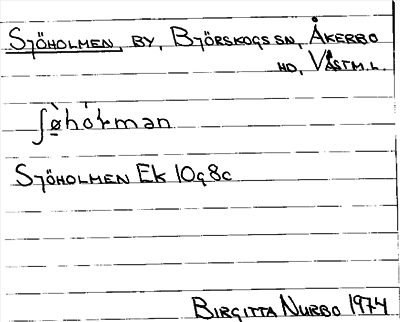 SJÖHOLMEN, BY, BJÖRSKOGS SN, ÅKERBO
HD, VÄSTM.L.
ʃø̀hòɫmən
SJÖHOLMEN EK 10G8C
BIRGITTA NURBO 1974